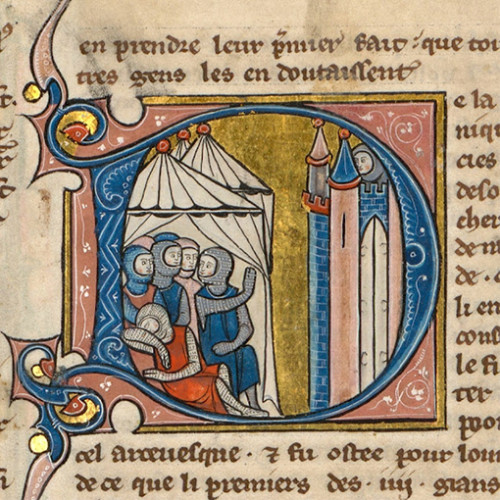 en prendre leur p̃mier fait · que tou
tres gens les en doutaissent
e la
niq
cies
deso
cher
de m
de ·
li en
le fi
ter
poo
cel arceuesque · ⁊ fu ostee pour lour
de ce que li premiers des · iiij · gians